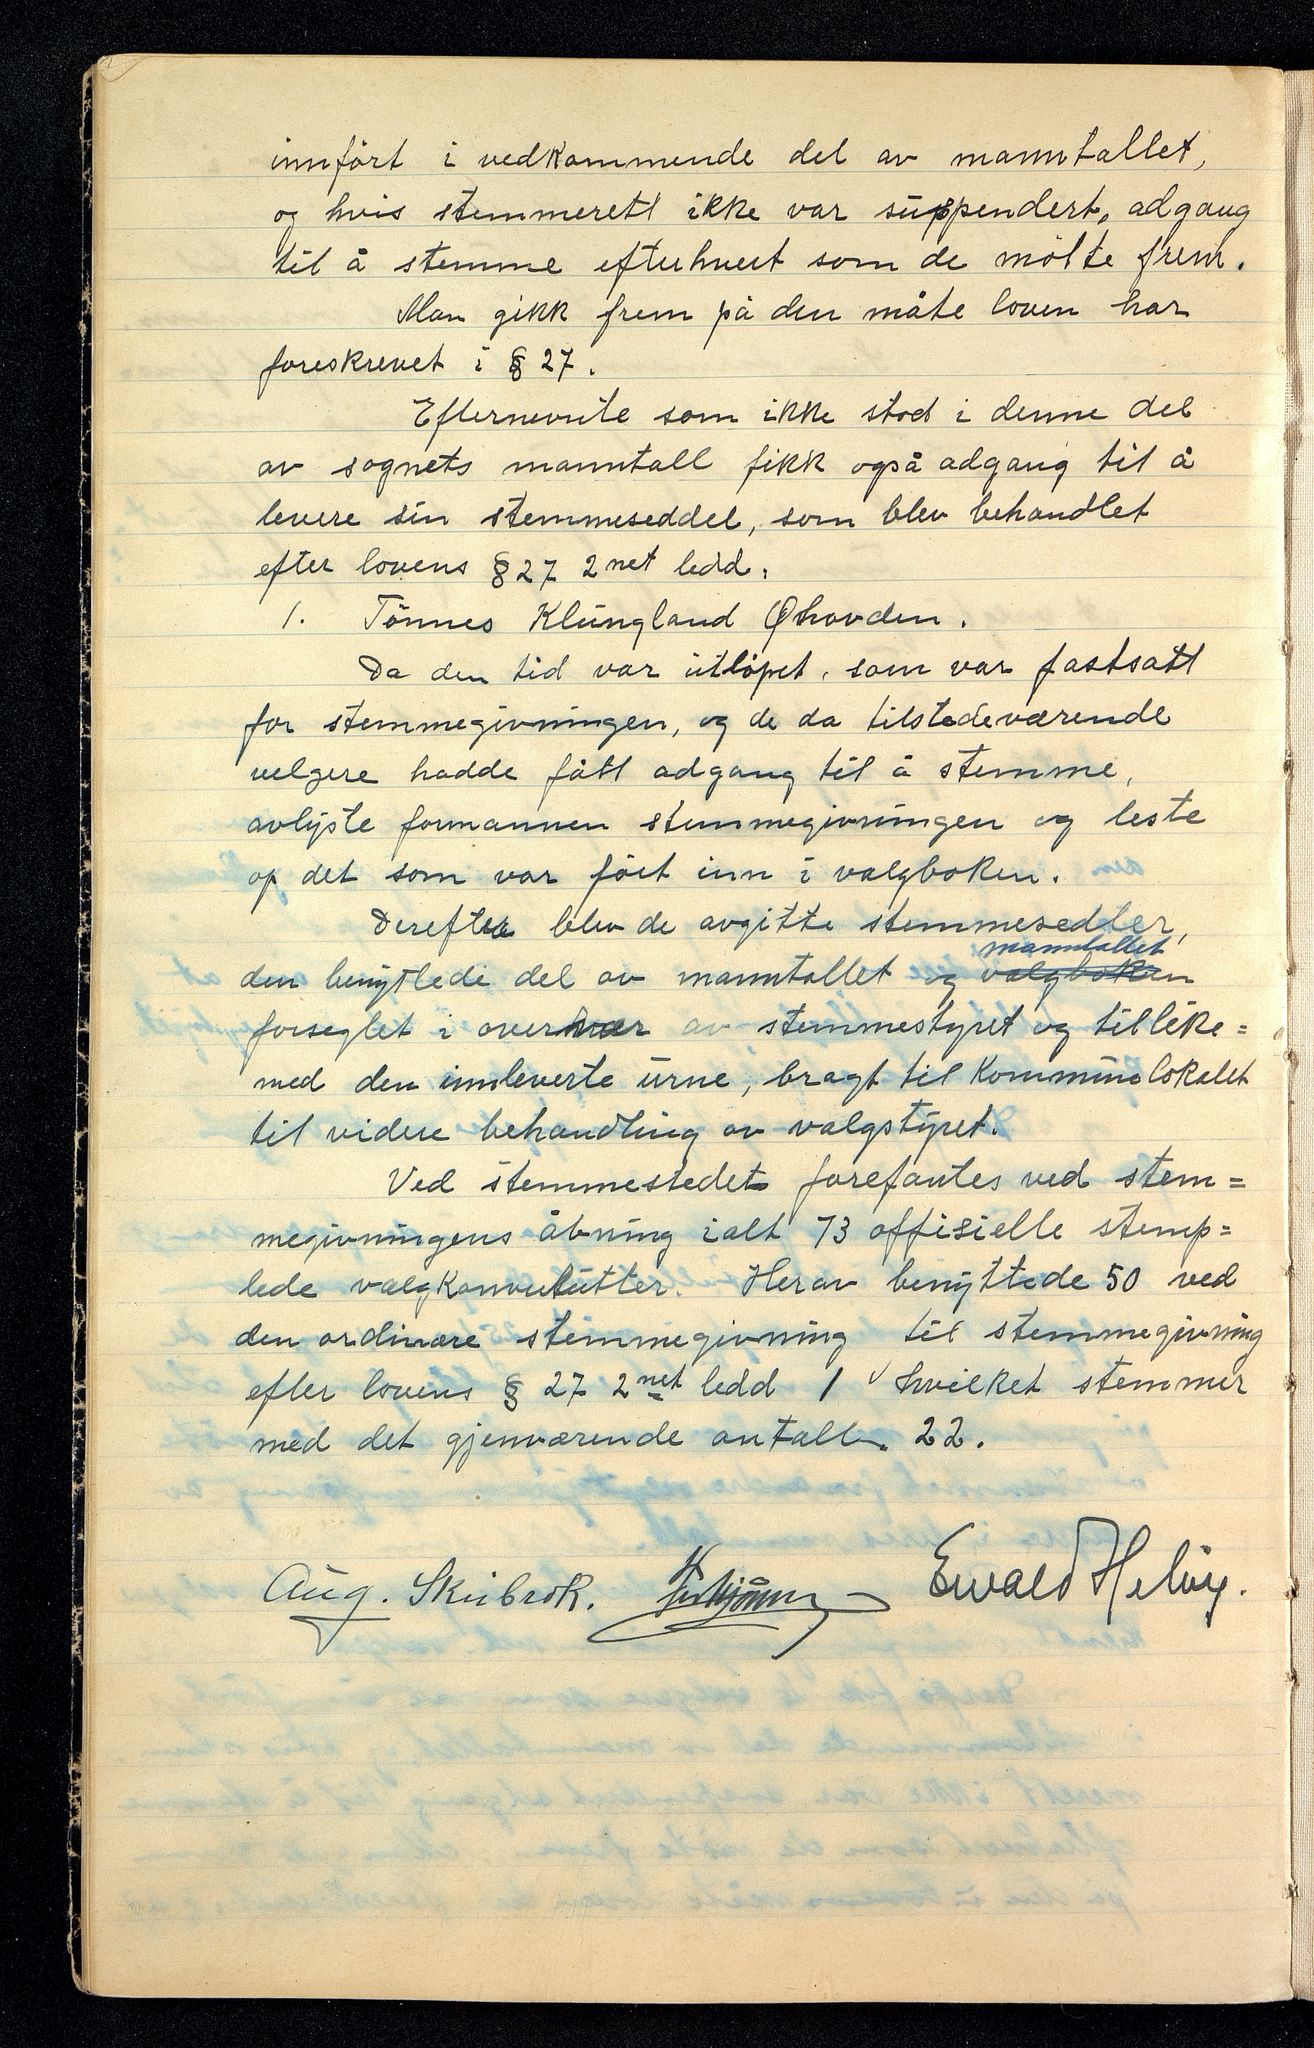 innført i vedkommende del av manntallet,
og hvis stemmerett ikke var suspendert, adgang
til å stemme efterhvert som de møtte frem.
Man gikk frem på den måte loven har
foreskrevet i § 27.
Efternevnte som ikke stod i denne del
av sognets manntall fikk også adgang til å
levere sin stemmeseddel, som blev behandlet
efter lovens § 27 2net ledd:
1. Tønnes Klungland Øhovden.
Da den tid var utløpet, som var fastsatt
for stemmegivningen, og de da tilstedeværende
velgere hadde fått adgang til å stemme,
avlyste formannen stemmegivningen og leste
op det som var ført inn i valgboken.
Derefter blev de avgitte stemmesedler,
manntallet
den benyttede del av manntallet og valgboken
forseglet i overvær av stemmestyret og tillike=
med den innleverte urne, bragt til kommunelokalet
til videre behandling av valgstyret.
Ved stemmestedet forefantes ved stem=
megivningens åbning ialt 73 offisielle stemp=
lede valgkonvolutter. Herav benyttede 50 ved
den ordinære stemmegivning til stemmegivning
efter lovens § 27 2net ledd 1 hvilket stemmer
med det gjenværende antall. 22.
Aug. Skibrok. Ewald Heløy.